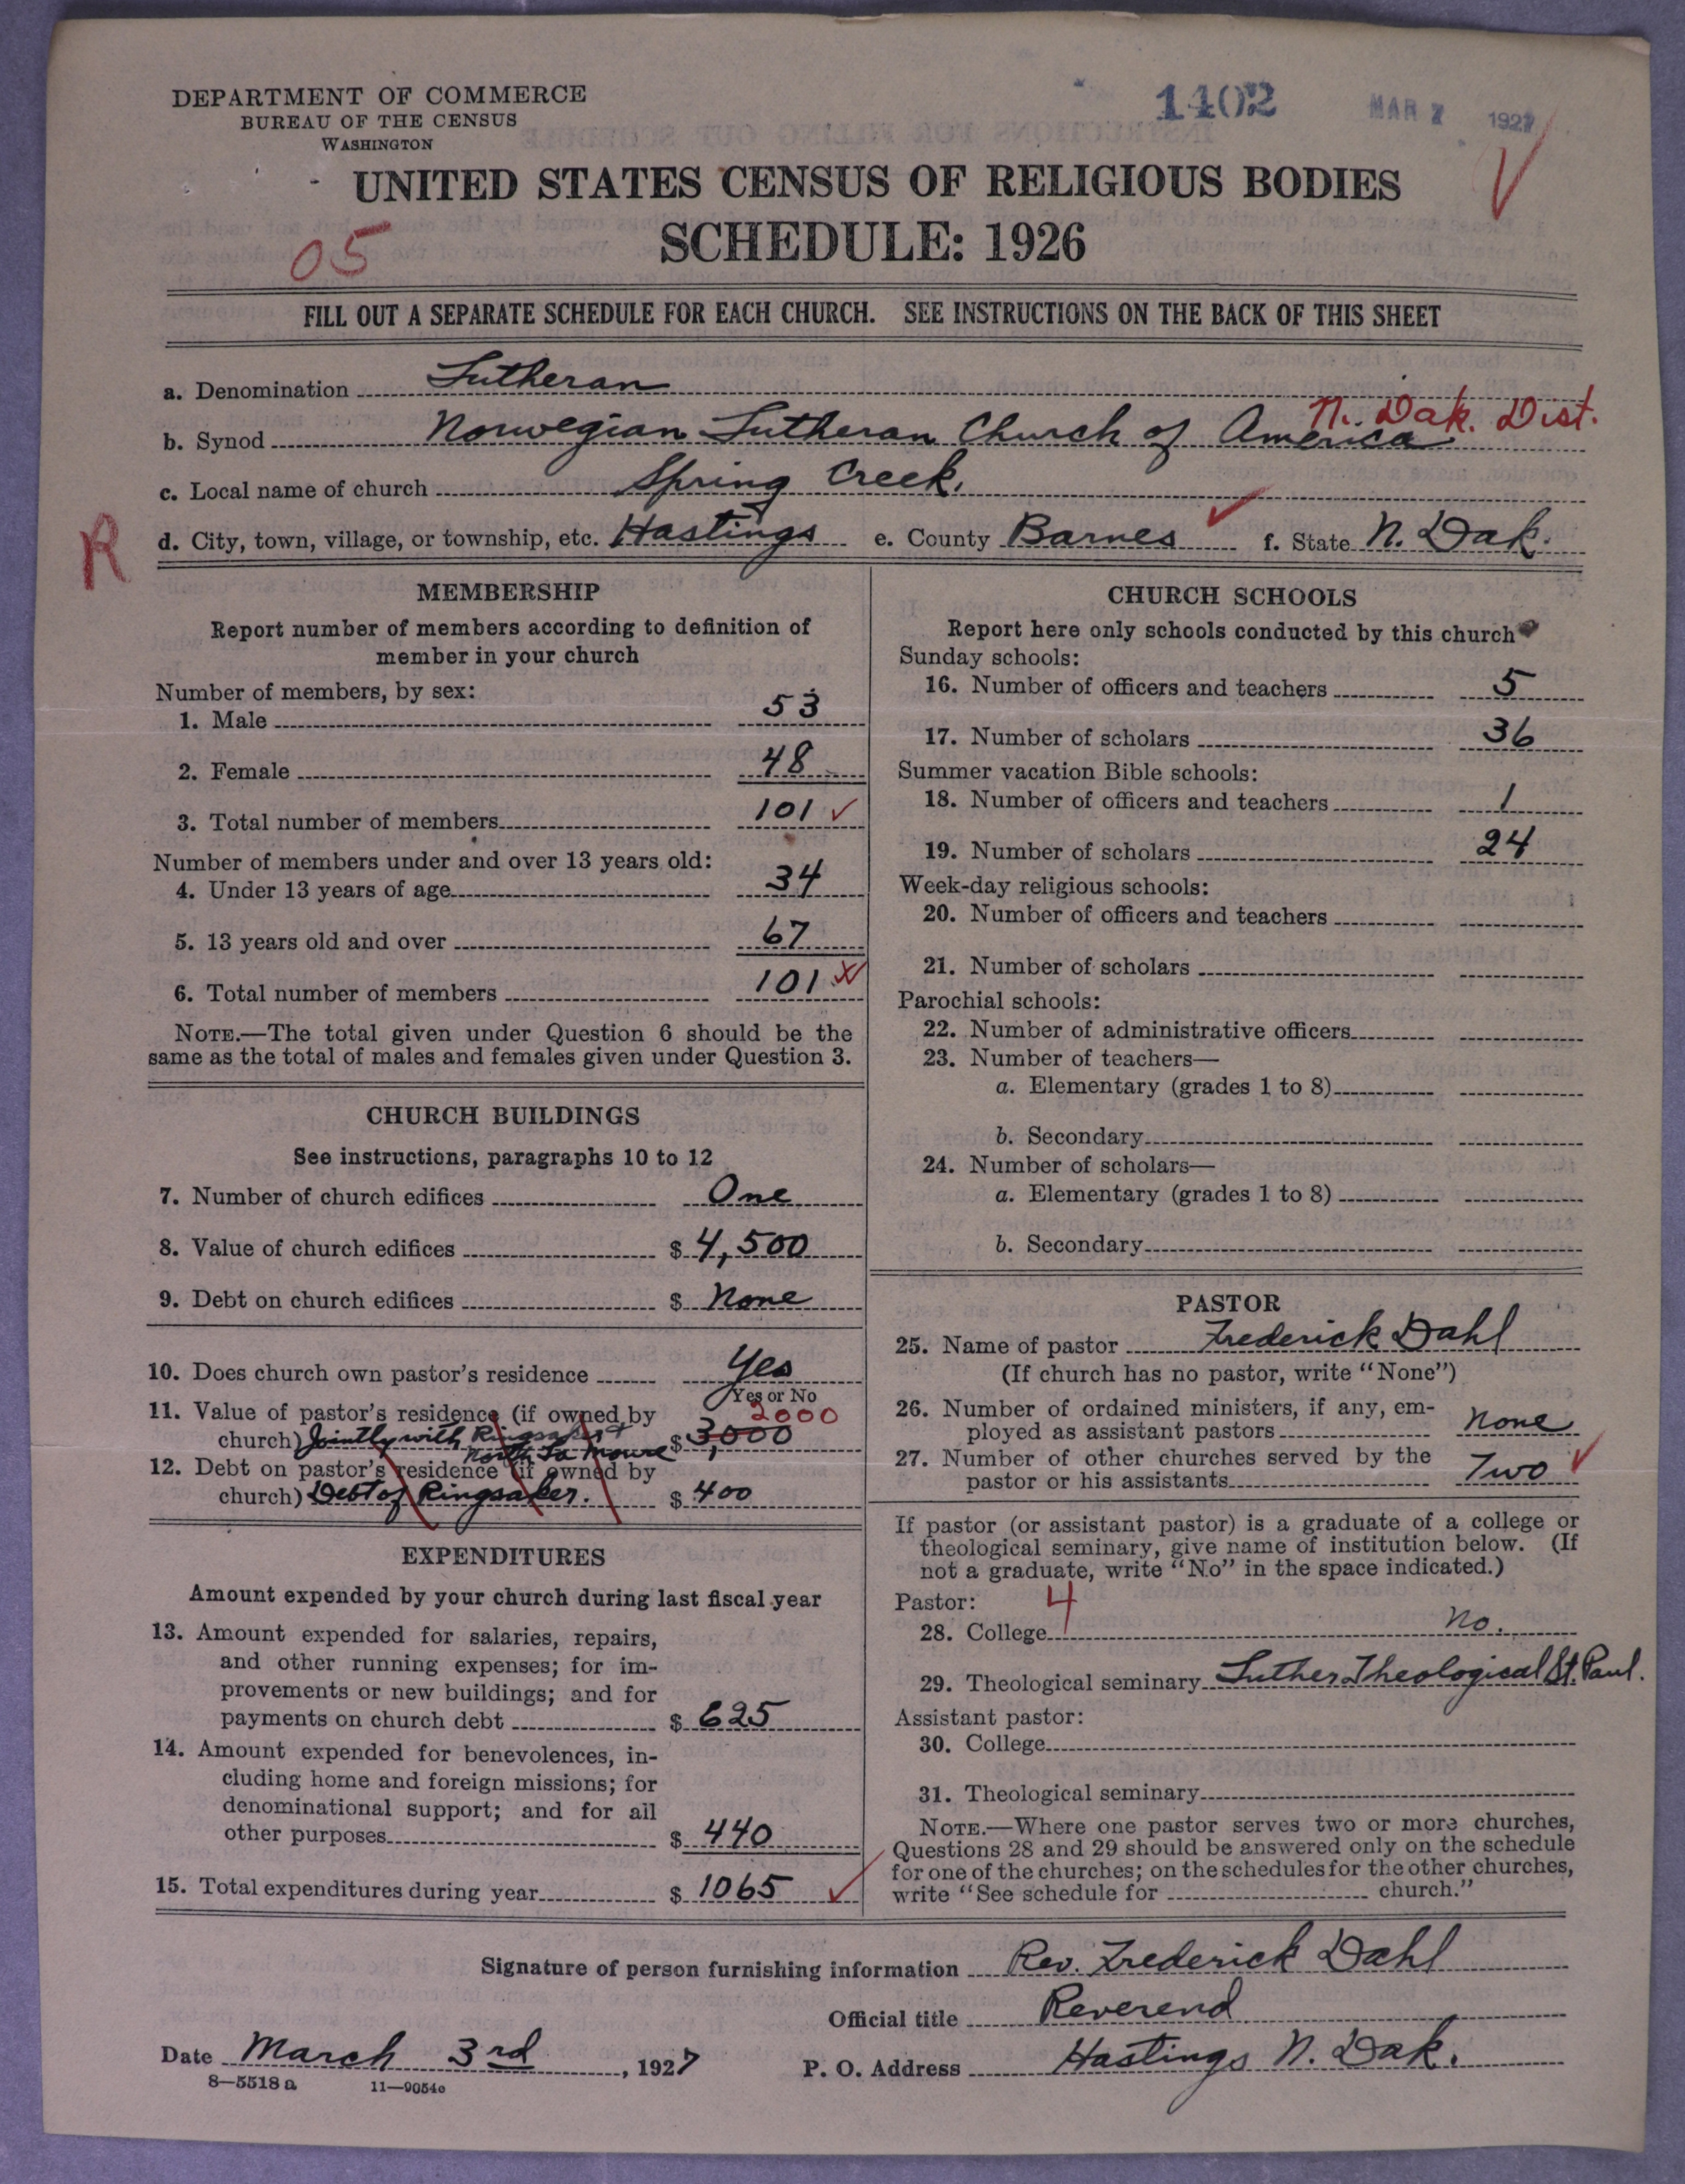 DEPARTMENT OF COMMERCE
BUREAU OF THE CENSUS
WASHINGTON
1402
MAR 7 1927
UNITED STATES CENSUS OF RELIGIOUS BODIES
SCHEDULE: 1926
05
FILL OUT A SEPARATE SCHEDULE FOR EACH CHURCH. SEE INSTRUCTIONS ON THE BACK OF THIS SHEET
a. Denomination Lutheran
N. Dak. Dist.
b. Synod Norwegian Lutheran Church of America
c. Local name of church Spring Creek.
R
d. City, town, village, or township, etc. Hastings e. County Barnes f. State N. Dak.
MEMBERSHIP
Report number of members according to definition of
member in your church
Number of members, by sex:
1. Male 53
2. Female 48
3. Total number of members 101
Number of members under and over 13 years old:
4. Under 13 years of age 34
5. 13 years old and over 67
6. Total number of members 101
NOTE.—The total given under Question 6 should be the
same as the total of males and females given under Question 3.
CHURCH BUILDINGS
See instructions, paragraphs 10 to 12
7. Number of church edifices One
8. Value of church edifices $ 4,500
9. Debt on church edifices $ None
10. Does church own pastor's residence Yes
Yes or No
11. Value of pastor's residence (if owned by 2000
church) Jointly with Ringsaker + $ 3,000
North La Moure
12. Debt on pastor's residence (if owned by
church) Debt of Ringsaker. $ 400
EXPENDITURES
Amount expended by your church during last fiscal year
13. Amount expended for salaries, repairs,
and other running expenses; for im-
provements or new buildings; and for
payments on church debt $ 625
14. Amount expended for benevolences, in-
cluding home and foreign missions; for
denominational support; and for all
other purposes $ 440
15. Total expenditures during year $ 1065
CHURCH SCHOOLS
Report here only schools conducted by this church
Sunday schools:
16. Number of officers and teachers 5
17. Number of scholars 36
Summer vacation Bible schools:
18. Number of officers and teachers 1
19. Number of scholars 24
Week-day religious schools:
20. Number of officers and teachers
21. Number of scholars
Parochial schools:
22. Number of administrative officers
23. Number of teachers—
a. Elementary (grades 1 to 8)
b. Secondary
24. Number of scholars—
a. Elementary (grades 1 to 8)
b. Secondary
PASTOR
25. Name of pastor Frederick Dahl
(If church has no pastor, write "None")
26. Number of ordained ministers, if any, em-
ployed as assistant pastors None
27. Number of other churches served by the
pastor or his assistants Two
If pastor (or assistant pastor) is a graduate of a college or
theological seminary, give name of institution below. (If
not a graduate, write "No" in the space indicated.)
Pastor: 4
28. College No.
29. Theological seminary Luther Theological St. Paul.
Assistant pastor:
30. College
31. Theological seminary
NOTE.—Where one pastor serves two or more churches,
Questions 28 and 29 should be answered only on the schedule
for one of the churches; on the schedules for the other churches,
write "See schedule for church."
Signature of person furnishing information Rev. Frederick Dahl
Official title Reverend
Date March 3rd, 1927 P. O. Address Hastings N. Dak.
8—5518 a 11—9054c